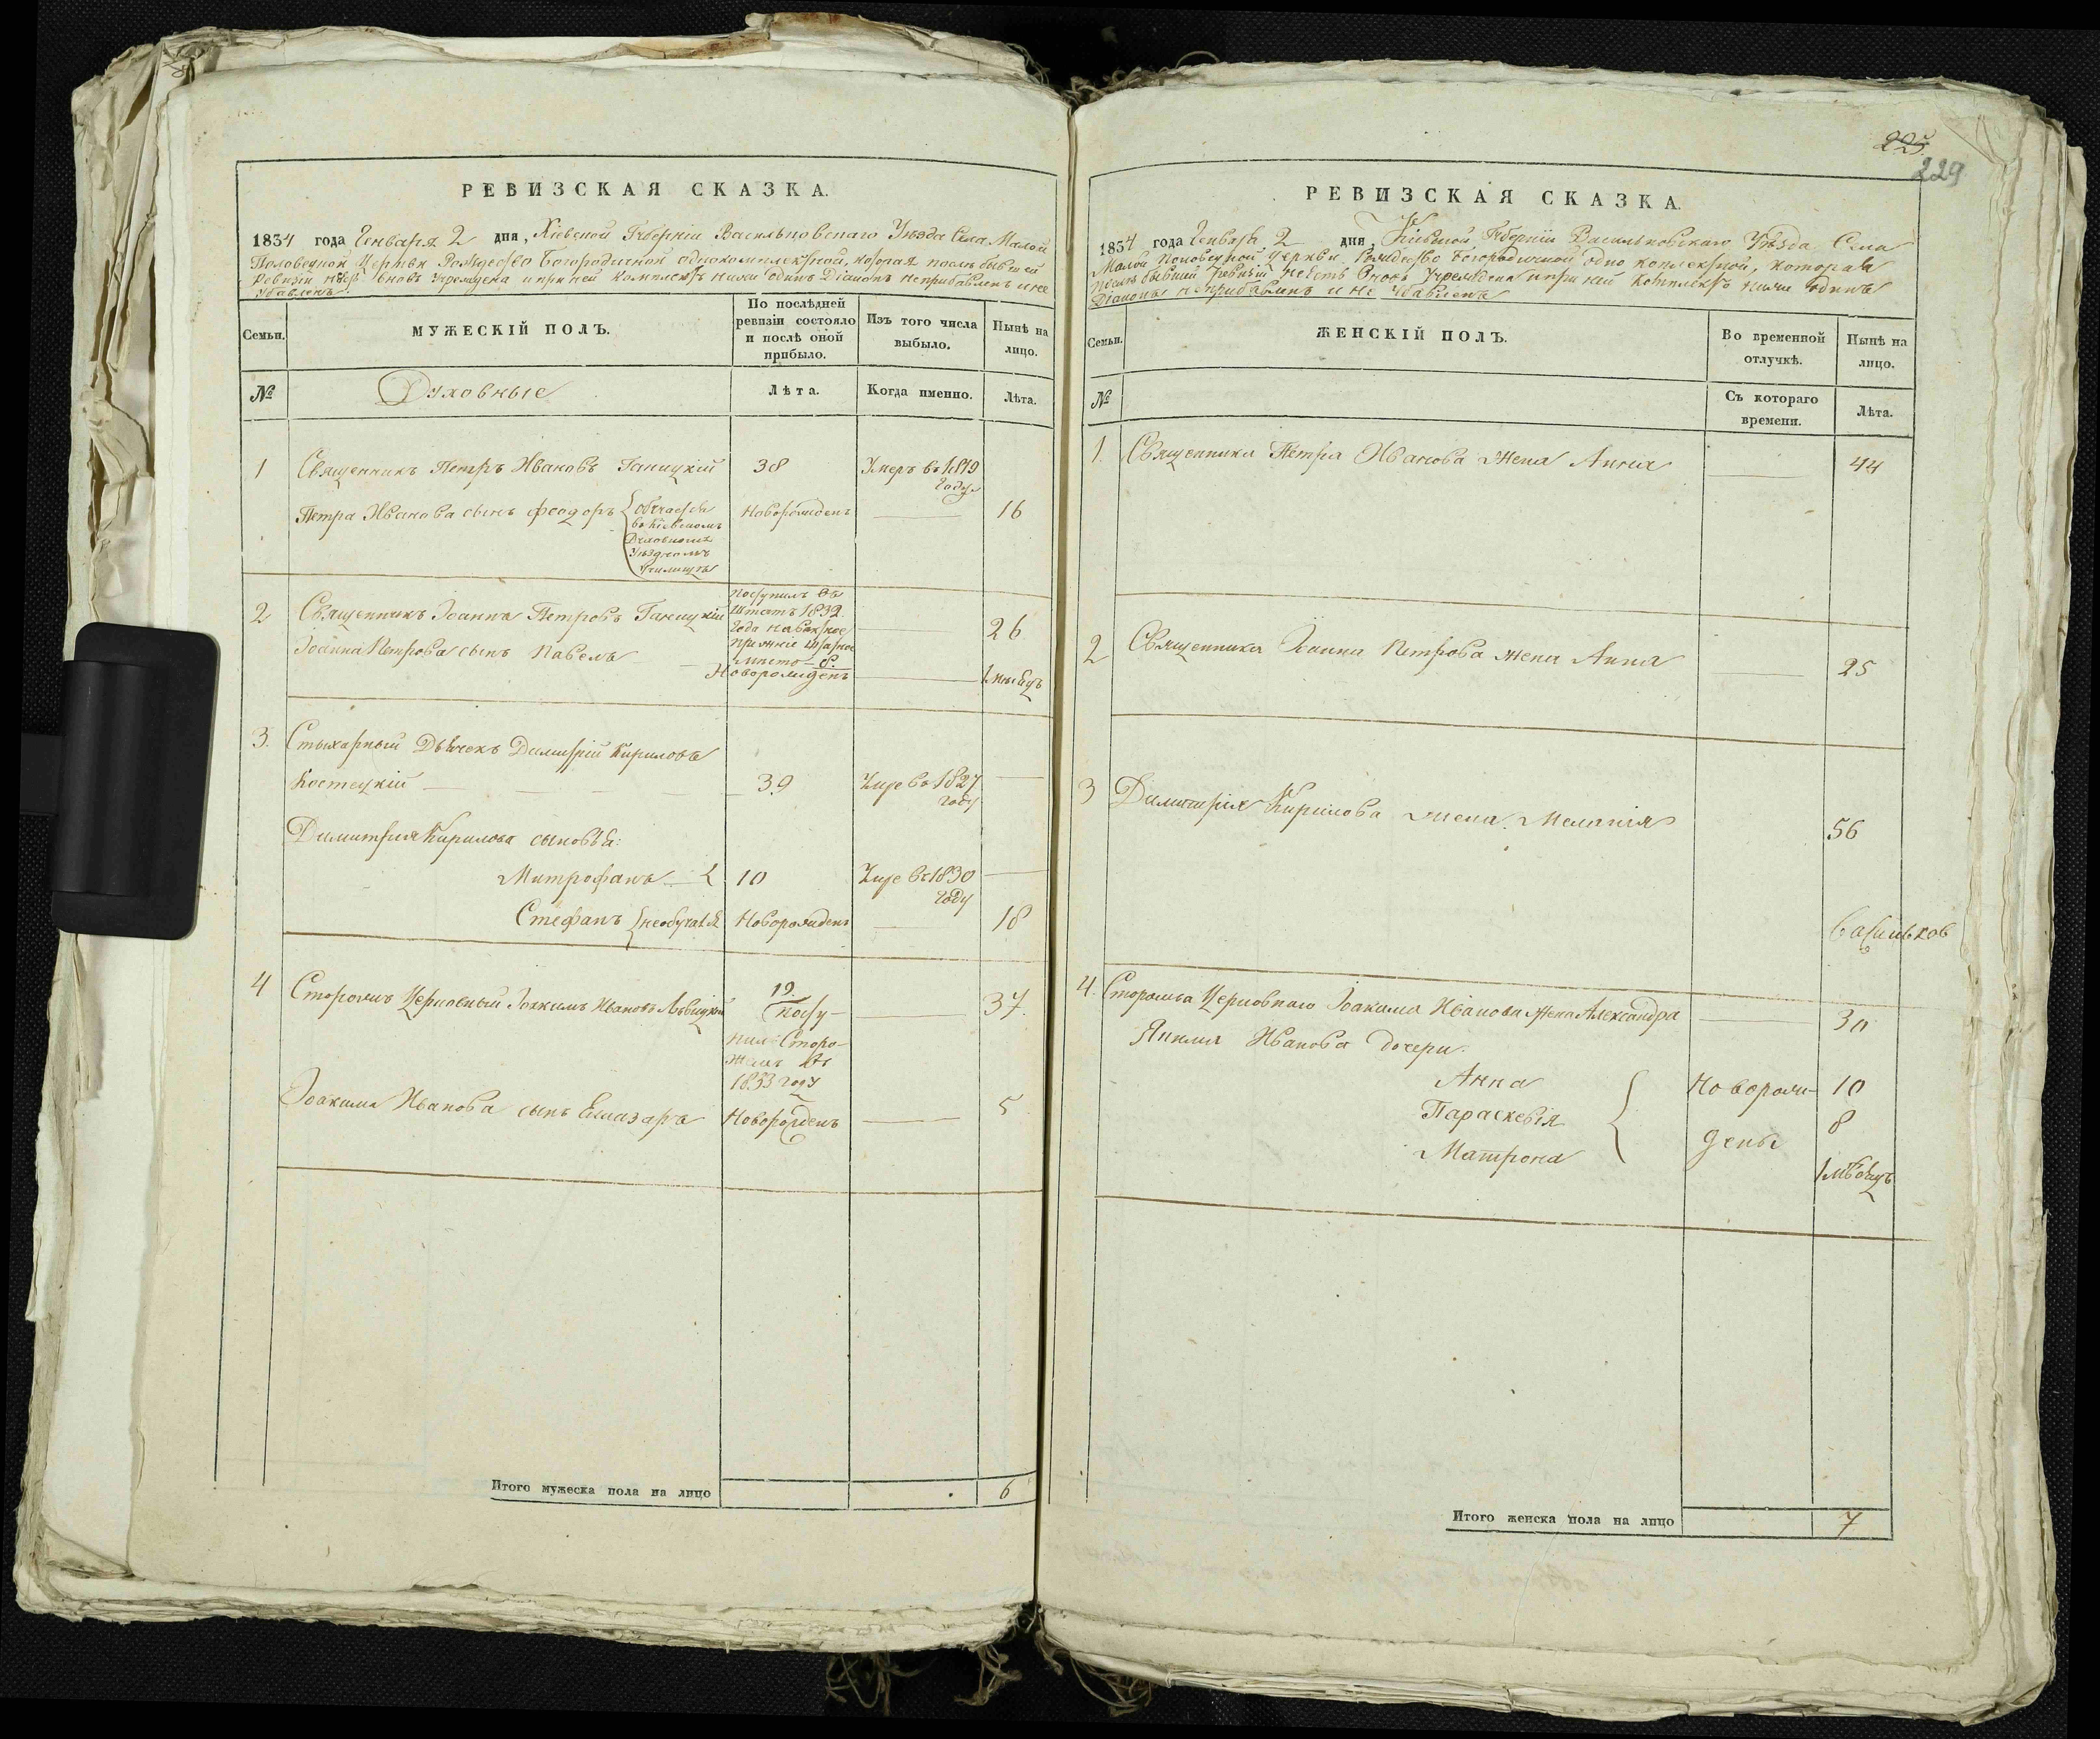 РЕВИЗСКАЯ СКАЗКА.
1834 года Генваря 2 дня, Кіевской Губерніи Васильковскаго Уѣзда Села Малой
Половецкой Церкви Рождество Богородичной однокомплектной, которая послѣ бывшей
Ревизіи вновь учреждена и при ней комплектъ ниже одинъ Діаконъ неприбавленъ и не
убавленъ.
Семьи.
МУЖЕСКІЙ ПОЛЪ.
По послѣдней ревизіи состояло и послѣ оной прибыло.
Изъ того числа выбыло.
Нынѣ на лицо.
№
Духовные
Лѣта.
Когда именно.
Лѣта.
1 Священникъ Петръ Ивановъ 38 Умеръ въ 1819
году
Петра Иванова сынъ Феодоръ обучается Новорожденъ 16
въ Кіевскомъ
Духовномъ
Уѣздномъ
Училищѣ
2 Священникъ Іоаннъ Петровъ Поступилъ въ
штатъ 1832
года 26
Іоанна Петрова сынъ Павелъ
мѣсто 8.
Новорожденъ 1 мѣсяцъ
3. Стихарный Дьячекъ Димитрій Кириловъ
Костецкій 39 Умре въ 1827
году
Димитрія Кирилова сыновья:
Митрофанъ 10 Умре въ 1830
году
Стефанъ необучался Новорожденъ 18
4 Сторожъ Церковный Іоакимъ Ивановъ Львицкій 19. 37.
посту-
пилъ Сторо-
жемъ въ
1833 году
Іоакима Иванова сынъ Елиазаръ Новорожденъ 5
Итого мужеска пола на лицо 6
225
229
РЕВИЗСКАЯ СКАЗКА.
1834 года Генваря 2 дня, Кіевской Губерніи Васильковскаго Уѣзда Села
Малой Половецкой Церкви Рождество Богородичной одно коплектной, которая
послѣ бывшей ревизіи вновь учреждена и при ней комплектъ ниже одинъ
Діаконъ неприбавленъ и не убавленъ
Семьи.
ЖЕНСКІЙ ПОЛЪ.
Во временной отлучкѣ.
Нынѣ на лицо.
№
Съ котораго времени.
Лѣта.
1. Священника Петра Иванова жена Анна 44
2 Священника Іоанна Петрова жена Анна 25
3 Димитрія Кирилова жена Меланія 56
Васильков
4. Сторожа Церковнаго Іоакима Иванова жена Александра 30
Якима Иванова дочери:
Анна Новорож- 10
Параскевія 8
дены
Матрона 1 мѣсяцъ
Итого женска пола на лицо 7